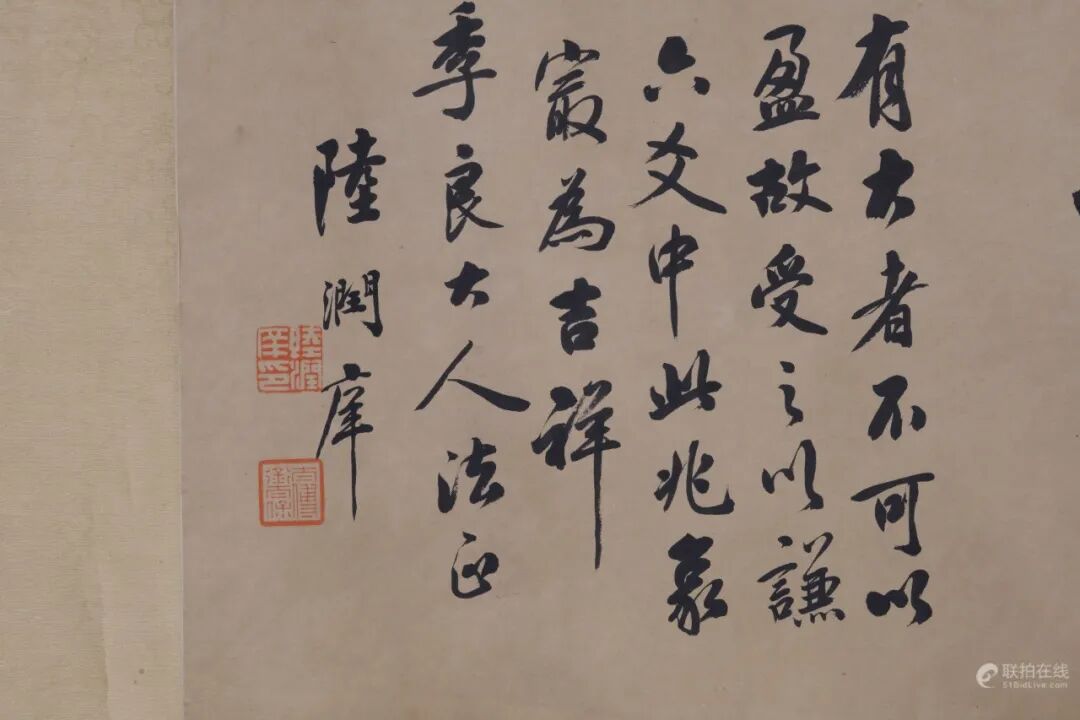 有大者不可以
盈故受之以謙
六爻中此兆象
最為吉祥
季良大人法正
陸潤庠
陸潤庠印
联拍在线
51BidLive.com